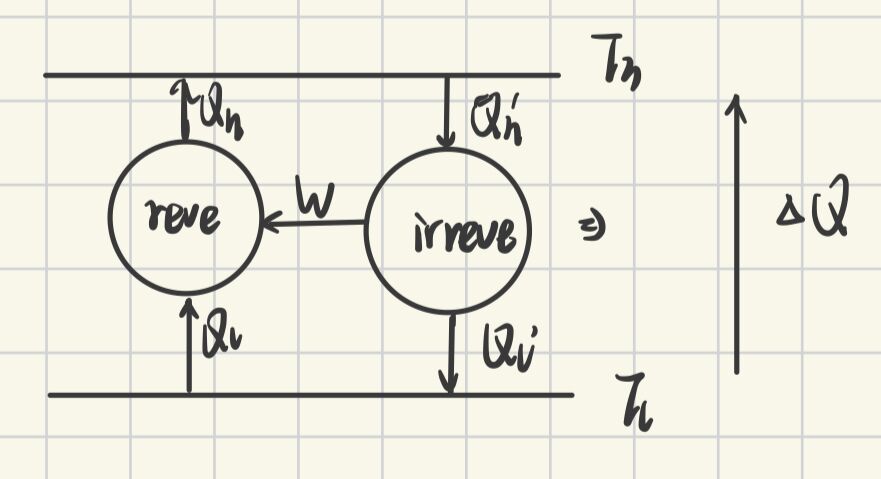 T_h
Q_h
Q_h'
reve
W
irreve
⇒
ΔQ
Q_L
Q_L'
T_L